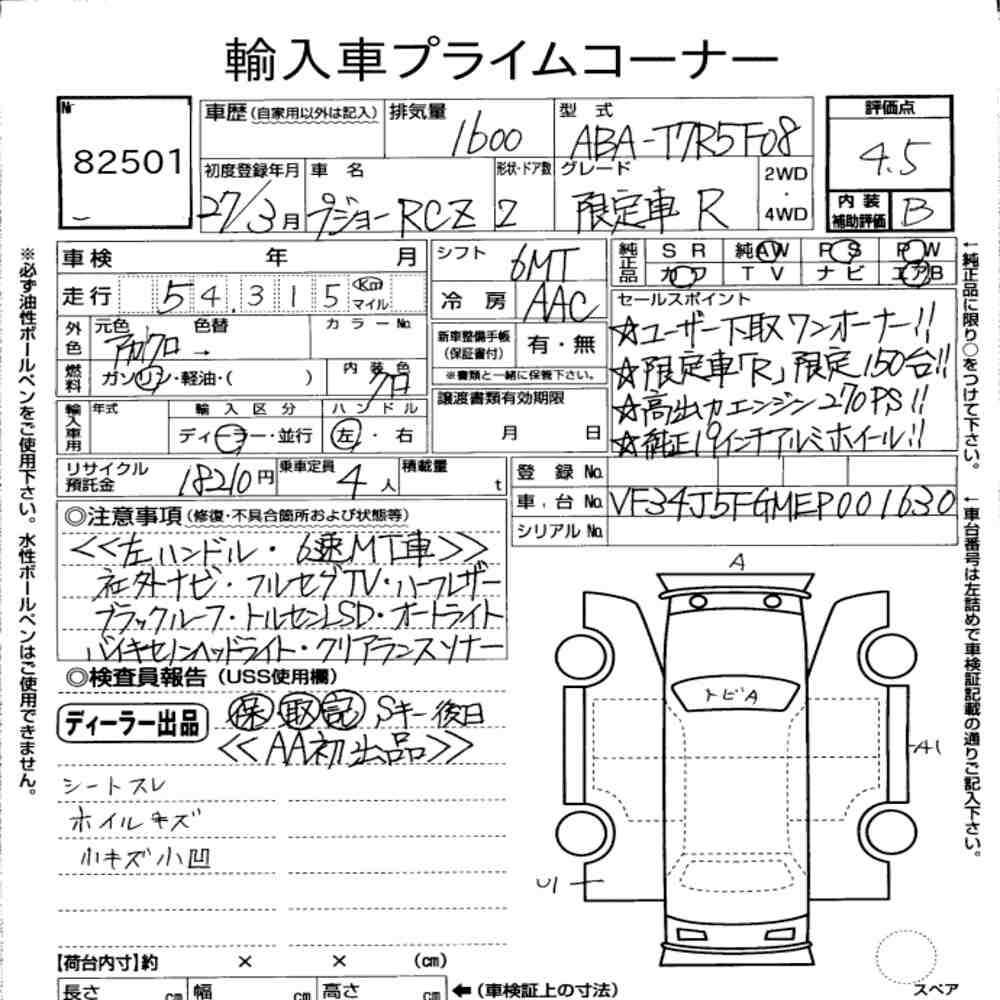 輸入車プライムコーナー
№ 82501
車歴 (自家用以外は記入) 排気量 1600 型式 ABA-T7R5F08
初度登録年月 27/3月 車名 プジョー RCZ 形状・ドア数 2 グレード 限定車 R 2WD・4WD
評価点 4.5
内装補助評価 B
車検 年 月
走行 54,315 Km マイル
外色 元色 色替 カラーNo.
→
燃料 ガソリン・軽油・( ) 内装色 クロ
輸入車用 年式 輸入区分 ディーラー・並行 ハンドル 左・右
リサイクル預託金 18210円 乗車定員 4人 積載量 t
シフト 6MT
冷房 AAC
新車整備手帳(保証書付) 有・無
※書類と一緒に保管下さい。
譲渡書類有効期限
月 日
純正品 SR 純AW PS PW
カワ TV ナビ エアB
セールスポイント
☆ユーザー下取ワンオーナー!!
☆限定車「R」限定150台!!
☆高出力エンジン270PS!!
☆純正19インチアルミホイール!!
登録No.
車台No. VF34J5FGMEP001630
シリアルNo.
◎注意事項 (修復・不具合箇所および状態等)
<<左ハンドル・6速MT車>>
社外ナビ・フルセグTV・ハーフレザー
ブラックルーフ・トルセンLSD・オートライト
バイキセノンヘッドライト・クリアランスソナー
◎検査員報告 (USS使用欄)
ディーラー出品 保 取 記 Sキー後日
<<AA初出品>>
シートスレ
ホイルキズ
小キズ小凹
A
トビA
A1
U1
スペア
【荷台内寸】約 × × (cm)
長さ cm 幅 cm 高さ cm ←(車検証上の寸法)
※必ず油性ボールペンをご使用下さい。水性ボールペンはご使用できません。
←純正品に限り○をつけて下さい。
←車台番号は左詰めで車検証記載の通りご記入下さい。